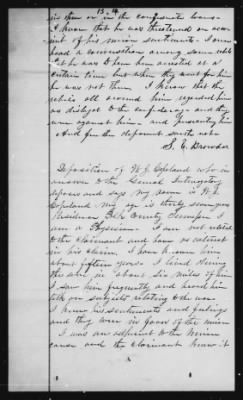 13.
in them or in the confederate loans.
I know that he was threatened on account
of his union sentiments. I over
heard a conversation among some rebels
that he was to have him arrested at a
certain time but when they went for him
he was not there. I know that the
rebels all around him regarded him
as disloyal to the confederacy and they
were against him and
And further the deponent saith not
S. C. Browder
Deposition of W. J. Copeland who in
answer to the General Interrogatory
deposes and says My name is W. J.
Copeland my age is thirty seven years
Residence County Tennessee I
am a Physician. I am not related
to the claimant and have no interest
in his claim. I have known him
about fifteen years. I lived during
the war in about six miles of him
I saw him frequently and heard him
talk on subjects relating to the war.
I knew his sentiments and feelings
and they were in favor of the union
I was an adherent to the Union
cause and the claimant knew it